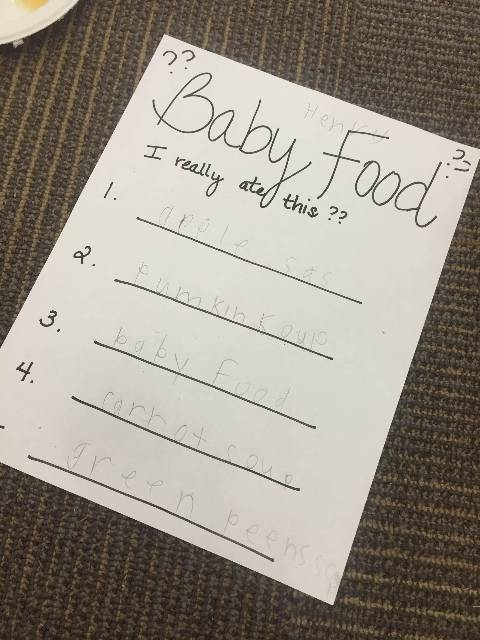 ??
Henry
Baby Food
??
I really ate this ??
1. apple sas
2. Pumkin koup
3. baby Food
4. carrot soup
green peens